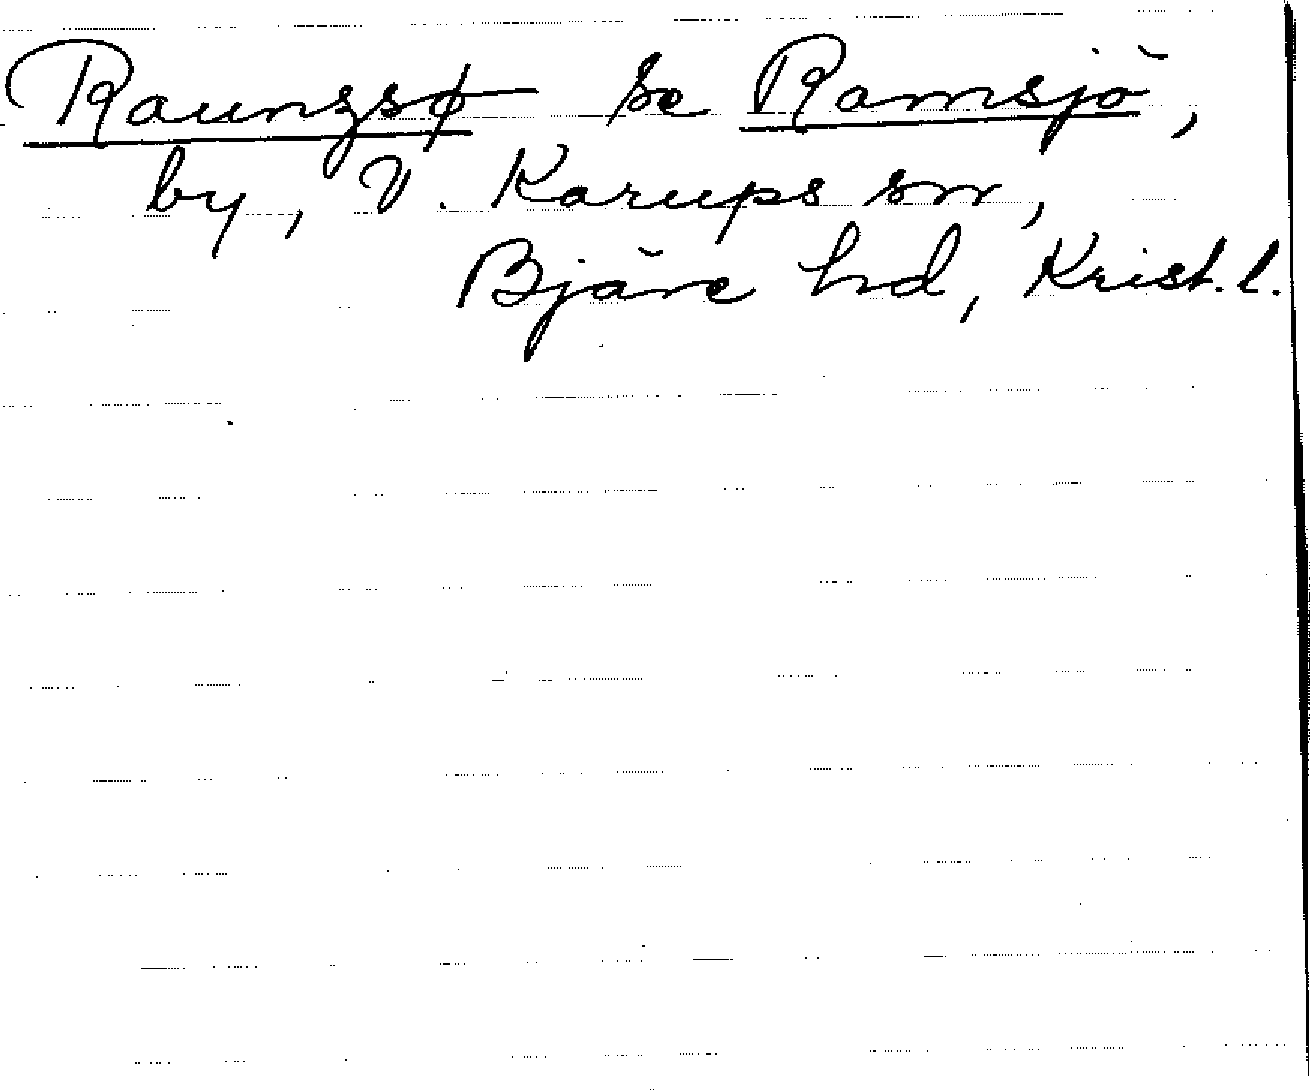 Raungsø se Ramsjö,
by, V. Karups sn,
Bjäre hd, Krist. l.